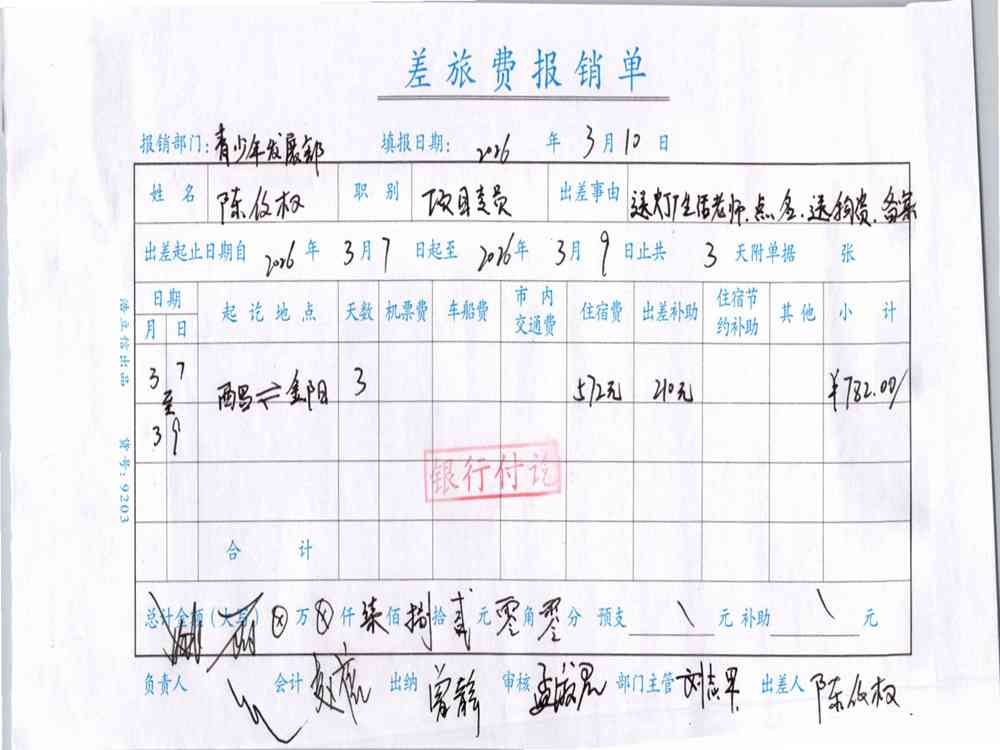 差旅费报销单
报销部门:青少年发展部 填报日期: 2026 年 3 月 10 日
姓名 陈仪权 职别 项目专员 出差事由 送灯、生活老师、点名、送物资、备案
出差起止日期自 2026 年 3 月 7 日起至 2026 年 3 月 9 日止共 3 天附单据 张
日期 起讫地点 天数 机票费 车船费 市内交通费 住宿费 出差补助 住宿节约补助 其他 小计
月 日
3 7 至 3 9 西昌⇌金阳 3 572元 210元 ¥782.00/
银行付讫
合计
总计金额(大写) ⊗万⊗仟柒佰捌拾贰元零角零分 预支 \ 元 补助 \ 元
负责人 会计 出纳 曾静 审核 部门主管 刘志果 出差人 陈仪权
货号:9203